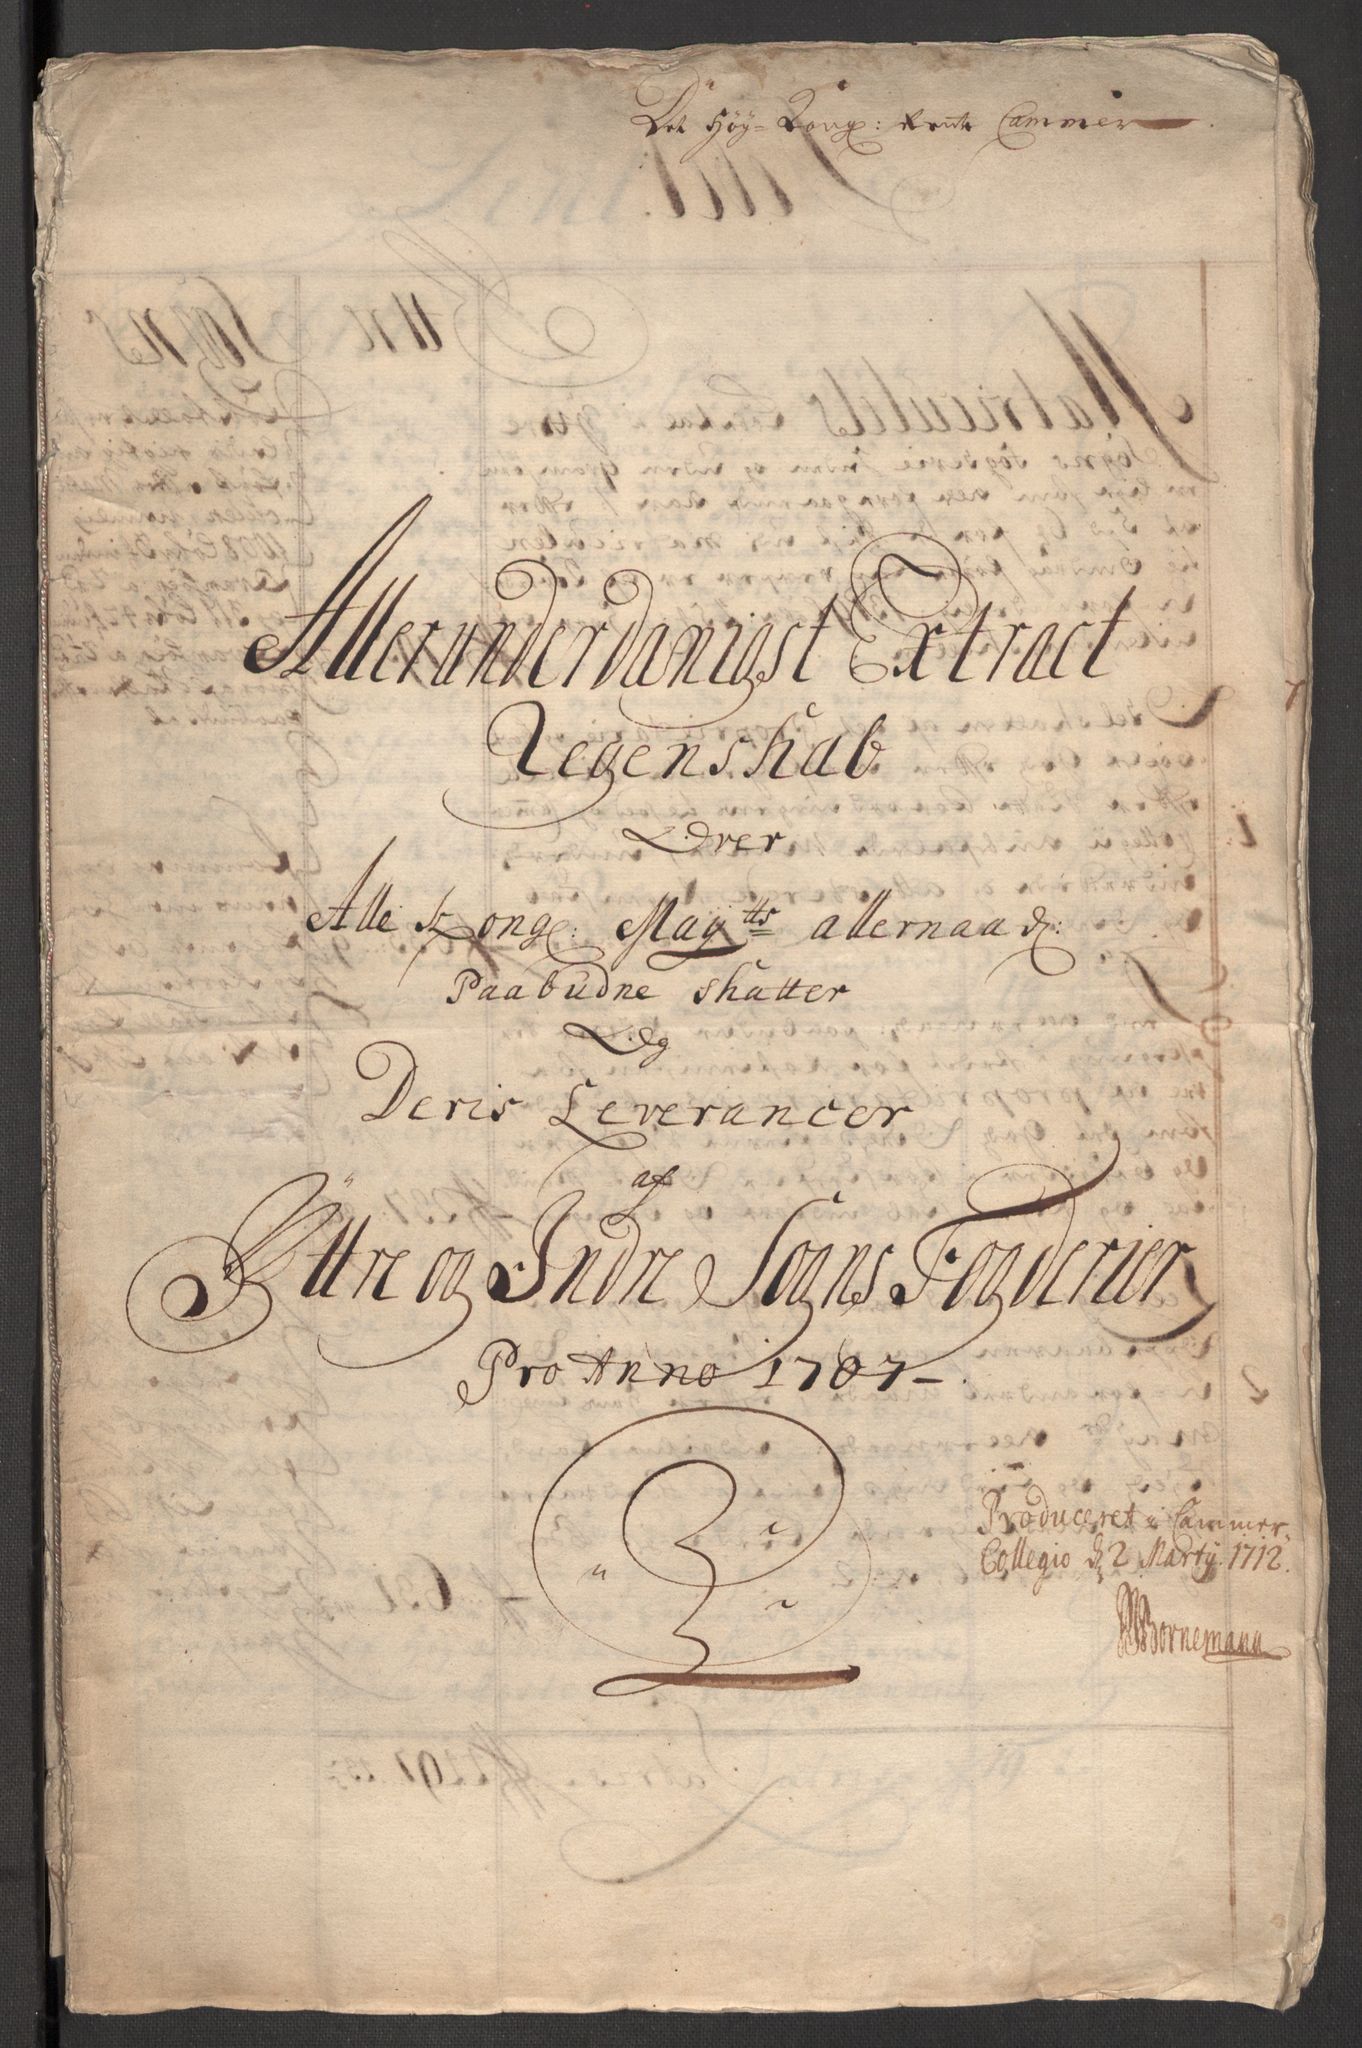 Det Höy-Kongl: Rente Cammer
Allerunderdanigst Extract
Regenskab
Over
Alle Kongl: Maytts allernaad:
Paabudne Skatter
Og
Deris Leverancer
af
Yttre og Indre Sogns Fogderier
Pro Anno 1707
Produceret i Cammer-
Collegio d 2 Martij 1712.
Bornemann